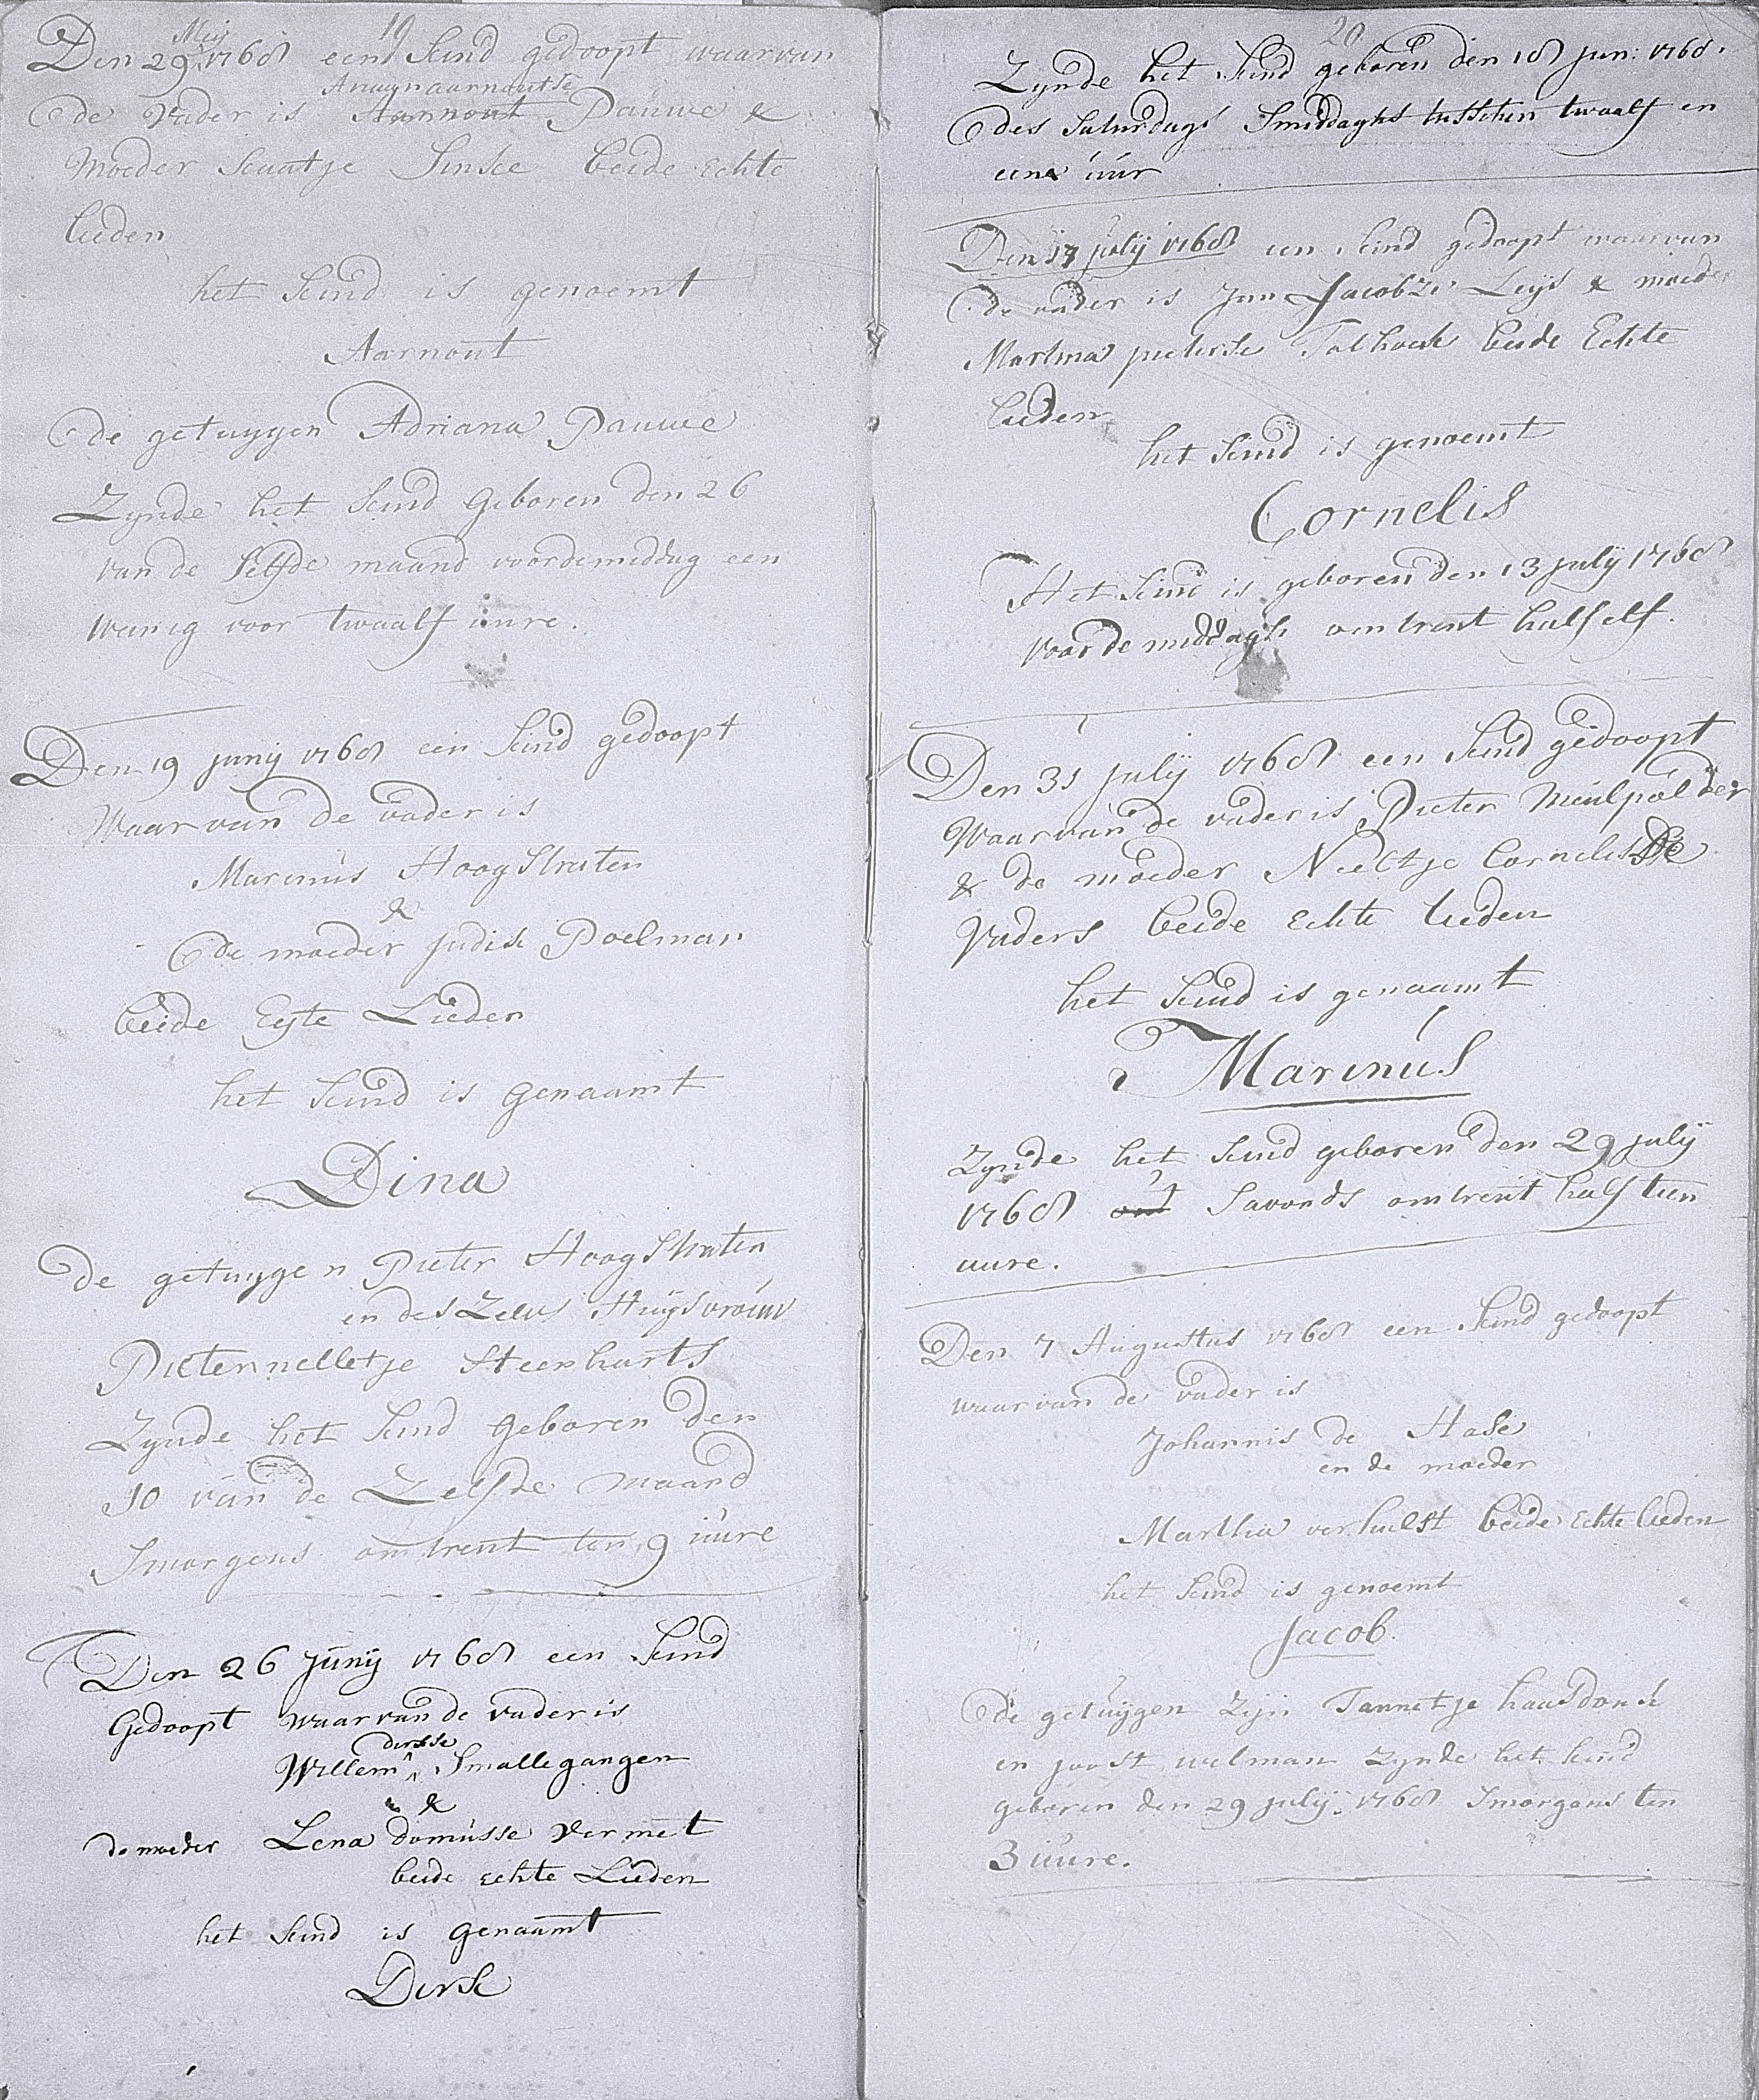 19
Meij
Den 29 1768 een kind gedoopt waarvan
de vader is Aarnout Pauwe &
Moeder Kaatje Sinke beide Echte
lieden
het kind is genoemt
Aarnout
de getuygen Adriana Pauwe
Zynde het kind Geboren den 26
van de selfde maand voordemiddag een
wenig voor twaalf uure.
Den 19 junij 1768 een kind gedoopt
Waarvan de vader is
Marinus Hoogstraten
&
de moeder judik Poelman
beide Egte Lieden
het kind is Genaamt
Dina
De getuygen Pieter Hoogstraten
en des Zelvs Huijsvrouw
Pieternelletje Steenharts
Zynde het kind Geboren den
10 van de Zelfde maand
Smorgens omtrent ten 9 uure
Den 26 Junij 1768 een kind
Gedoopt waarvan de vader is
dirkse
Willem ^ Smallegangen
&
de moeder Lena domusse Vermet
beide echte Lieden
het kind is Genaamt
Dirk
20
Zynde het kind geboren den 18 jun: 1768.
des Saturdags Smiddaghs tusschen twaalf en
eene uur
Den 17 julij 1768 een kind gedoopt waarvan
de vader is Jan Jacobze Leijs & moeder
Martina pieterse Tolhoek beide Echte
lieden
het kind is genoemt
Cornelis
Het kind is geboren den 13 julij 1768
voordemiddaghs omtrent half elf.
Den 31 julij 1768 een kind gedoopt
Waarvan de vader is Pieter Meulpolder
& de moeder Neeltje Cornelisse
Vaders beide echte lieden
het kind is genaamt
Marinus
Zynde het kind geboren den 29 julij
1768 Savonds omtrent half tien
uure.
Den 7 Augustus 1768 een kind gedoopt
waarvan de vader is
Johannis de Hase
en de moeder
Martha verhulst beide echte lieden
het kind is genoemt
Jacob.
De getuijgen Zijn Tannetje haasdonk
en joost welman Zynde het kind
geboren den 29 julij 1768 Smorgens ten
3 uure.